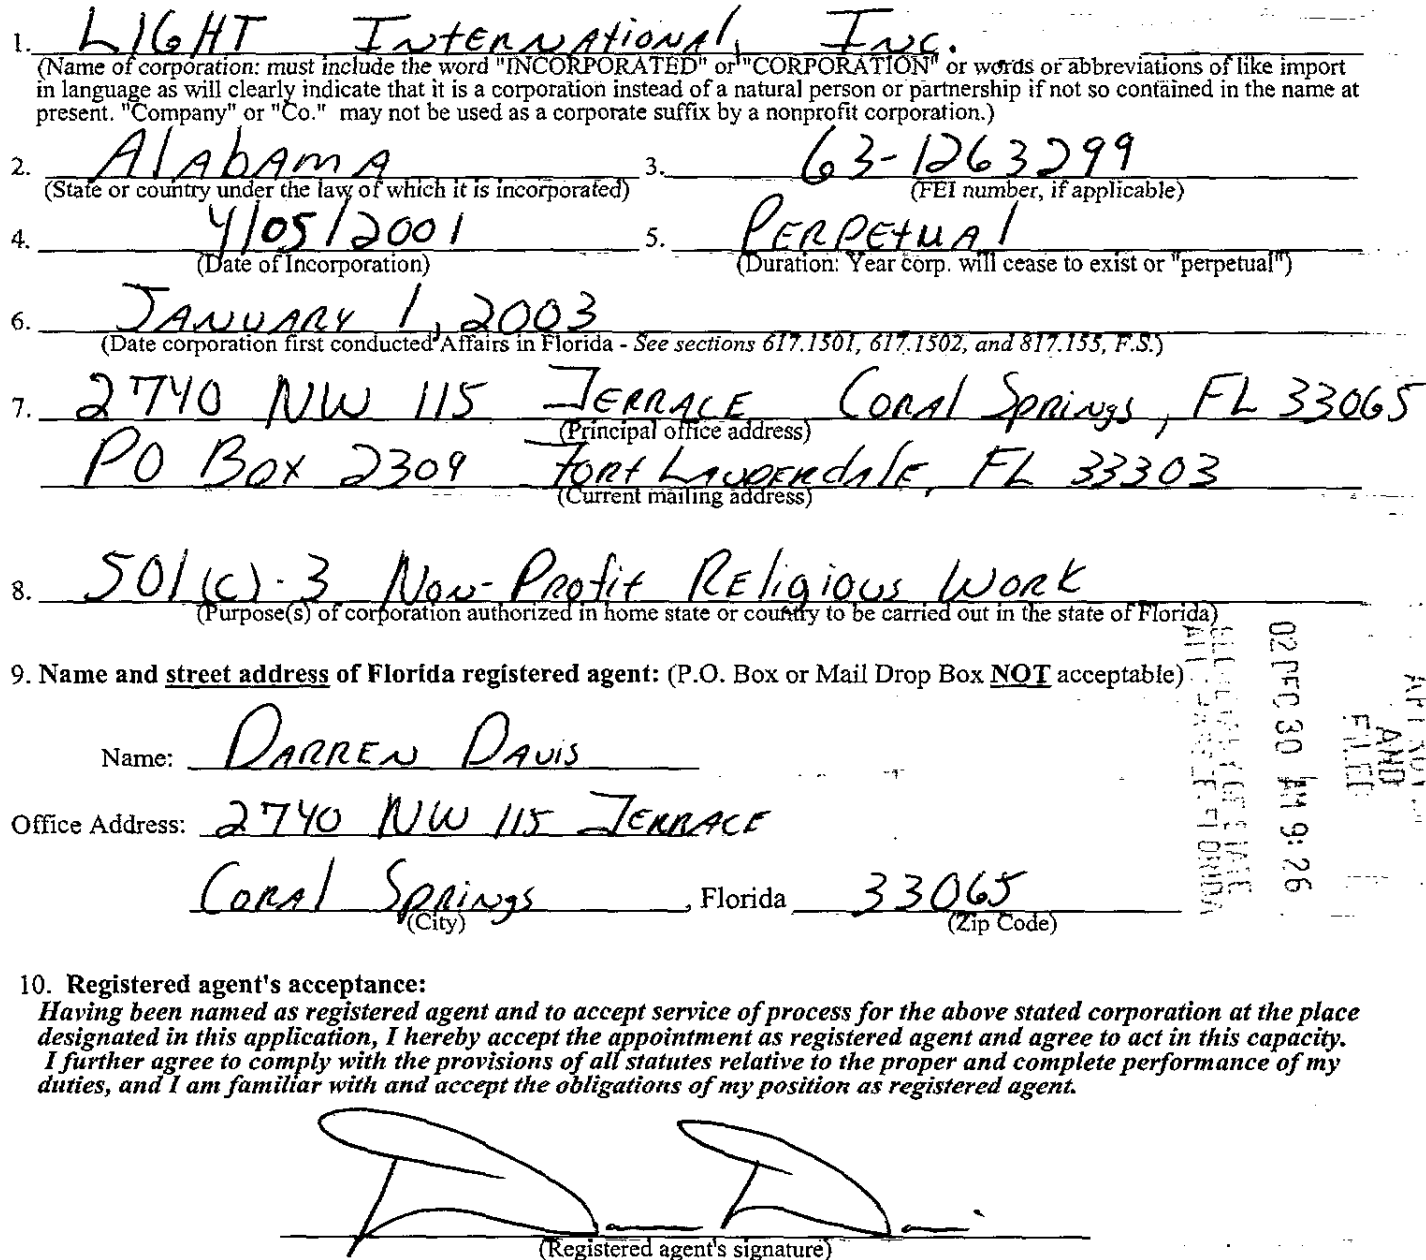 1. LIGHT International, Inc.
(Name of corporation: must include the word "INCORPORATED" or "CORPORATION" or words or abbreviations of like import
in language as will clearly indicate that it is a corporation instead of a natural person or partnership if not so contained in the name at
present. "Company" or "Co." may not be used as a corporate suffix by a nonprofit corporation.)
2. Alabama 3. 63-1263299
(State or country under the law of which it is incorporated) (FEI number, if applicable)
4. 4/05/2001 5. Perpetual
(Date of Incorporation) (Duration: Year corp. will cease to exist or "perpetual")
6. January 1, 2003
(Date corporation first conducted Affairs in Florida - See sections 617.1501, 617.1502, and 817.155, F.S.)
7. 2740 NW 115 Terrace Coral Springs, FL 33065
(Principal office address)
PO Box 2309 Fort Lauderdale, FL 33303
(Current mailing address)
8. 501(c)-3 Non-Profit Religious Work
(Purpose(s) of corporation authorized in home state or country to be carried out in the state of Florida)
9. Name and street address of Florida registered agent: (P.O. Box or Mail Drop Box NOT acceptable)
Name: Darren Davis
Office Address: 2740 NW 115 Terrace
Coral Springs, Florida 33065
(City) (Zip Code)
AND
FILED
02 DEC 30 AM 9:26
10. Registered agent's acceptance:
Having been named as registered agent and to accept service of process for the above stated corporation at the place
designated in this application, I hereby accept the appointment as registered agent and agree to act in this capacity.
I further agree to comply with the provisions of all statutes relative to the proper and complete performance of my
duties, and I am familiar with and accept the obligations of my position as registered agent.
(Registered agent's signature)